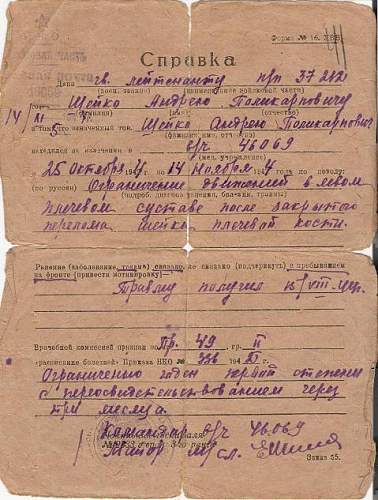 Форма № 16. ХВВ
Справка
Дана гв. лейтенанту п/п 37 282
(воен. звание) (наименование войсковой части)
Шейко Андрею Поликарповичу
(имя) (отчество)
в том, что означенный тов. Шейко Андрею Поликарпович
(фамилия, имя, отчество)
находился на излечении в в/ч 46069
(леч. учреждение)
с 25 октября 194 по 14 ноября 194 4 года по поводу:
(по русски) Ограничение движений в левом
(подроб. диагноз ранения, болезни, травмы)
плечевом суставе после закрытого
перелома шейки плечевой кости.
Ранение (заболевание, травма) связано, не связано (подчеркнуть) с пребыванием
на фронте (привести мотивировку)
Травму получил
Врачебной комиссией признан по гр. 49, гр. II
расписание болезней Приказа НКО № 336 194
Ограничению годен первой степени
с переосвидетельствованием через
три месяца.
Командир в/ч 46.069
Майор м/сл.
Заказ 35.